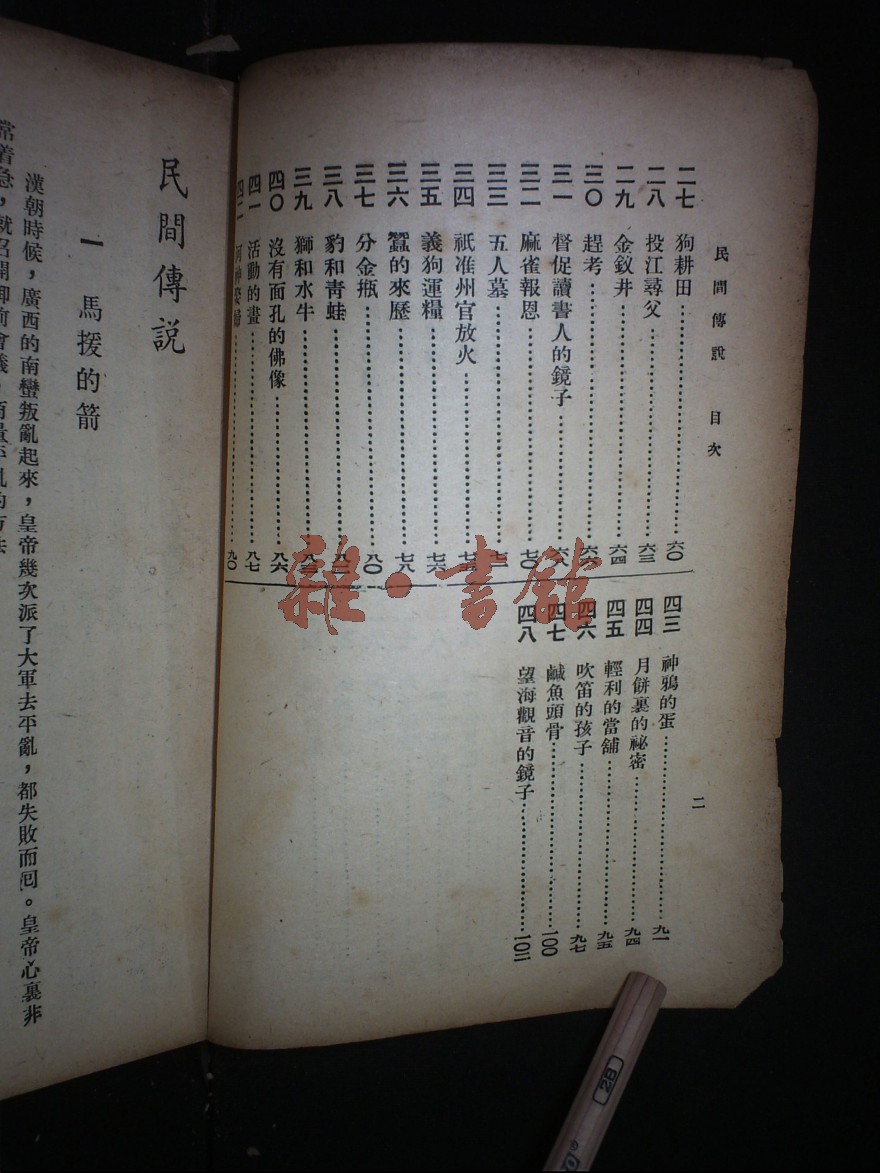 民間傳說 目次
二
二七 狗耕田 六〇
二八 投江尋父 六三
二九 金釵井 六四
三〇 趕考 六六
三一 督促讀書人的鏡子 六八
三二 麻雀報恩 七〇
三三 五人墓 七三
三四 祇准州官放火 七五
三五 義狗運糧 七六
三六 蠶的來歷 七八
三七 分金瓶 八〇
三八 豹和青蛙 八二
三九 獅和水牛 八三
四〇 沒有面孔的佛像 八六
四一 活動的畫 八七
四二 九〇
四三 神鴉的蛋 九一
四四 月餅裏的祕密 九四
四五 輕利的當舖 九五
四六 吹笛的孩子 九七
四七 鹹魚頭骨 100
四八 望海觀音的鏡子 10二
民間傳說
一 馬援的箭
漢朝時候，廣西的南蠻叛亂起來，皇帝幾次派了大軍去平亂，都失敗而回。皇帝心裏非
常着急，就召開御前會議，商量平亂的方法
雜·書館
2B